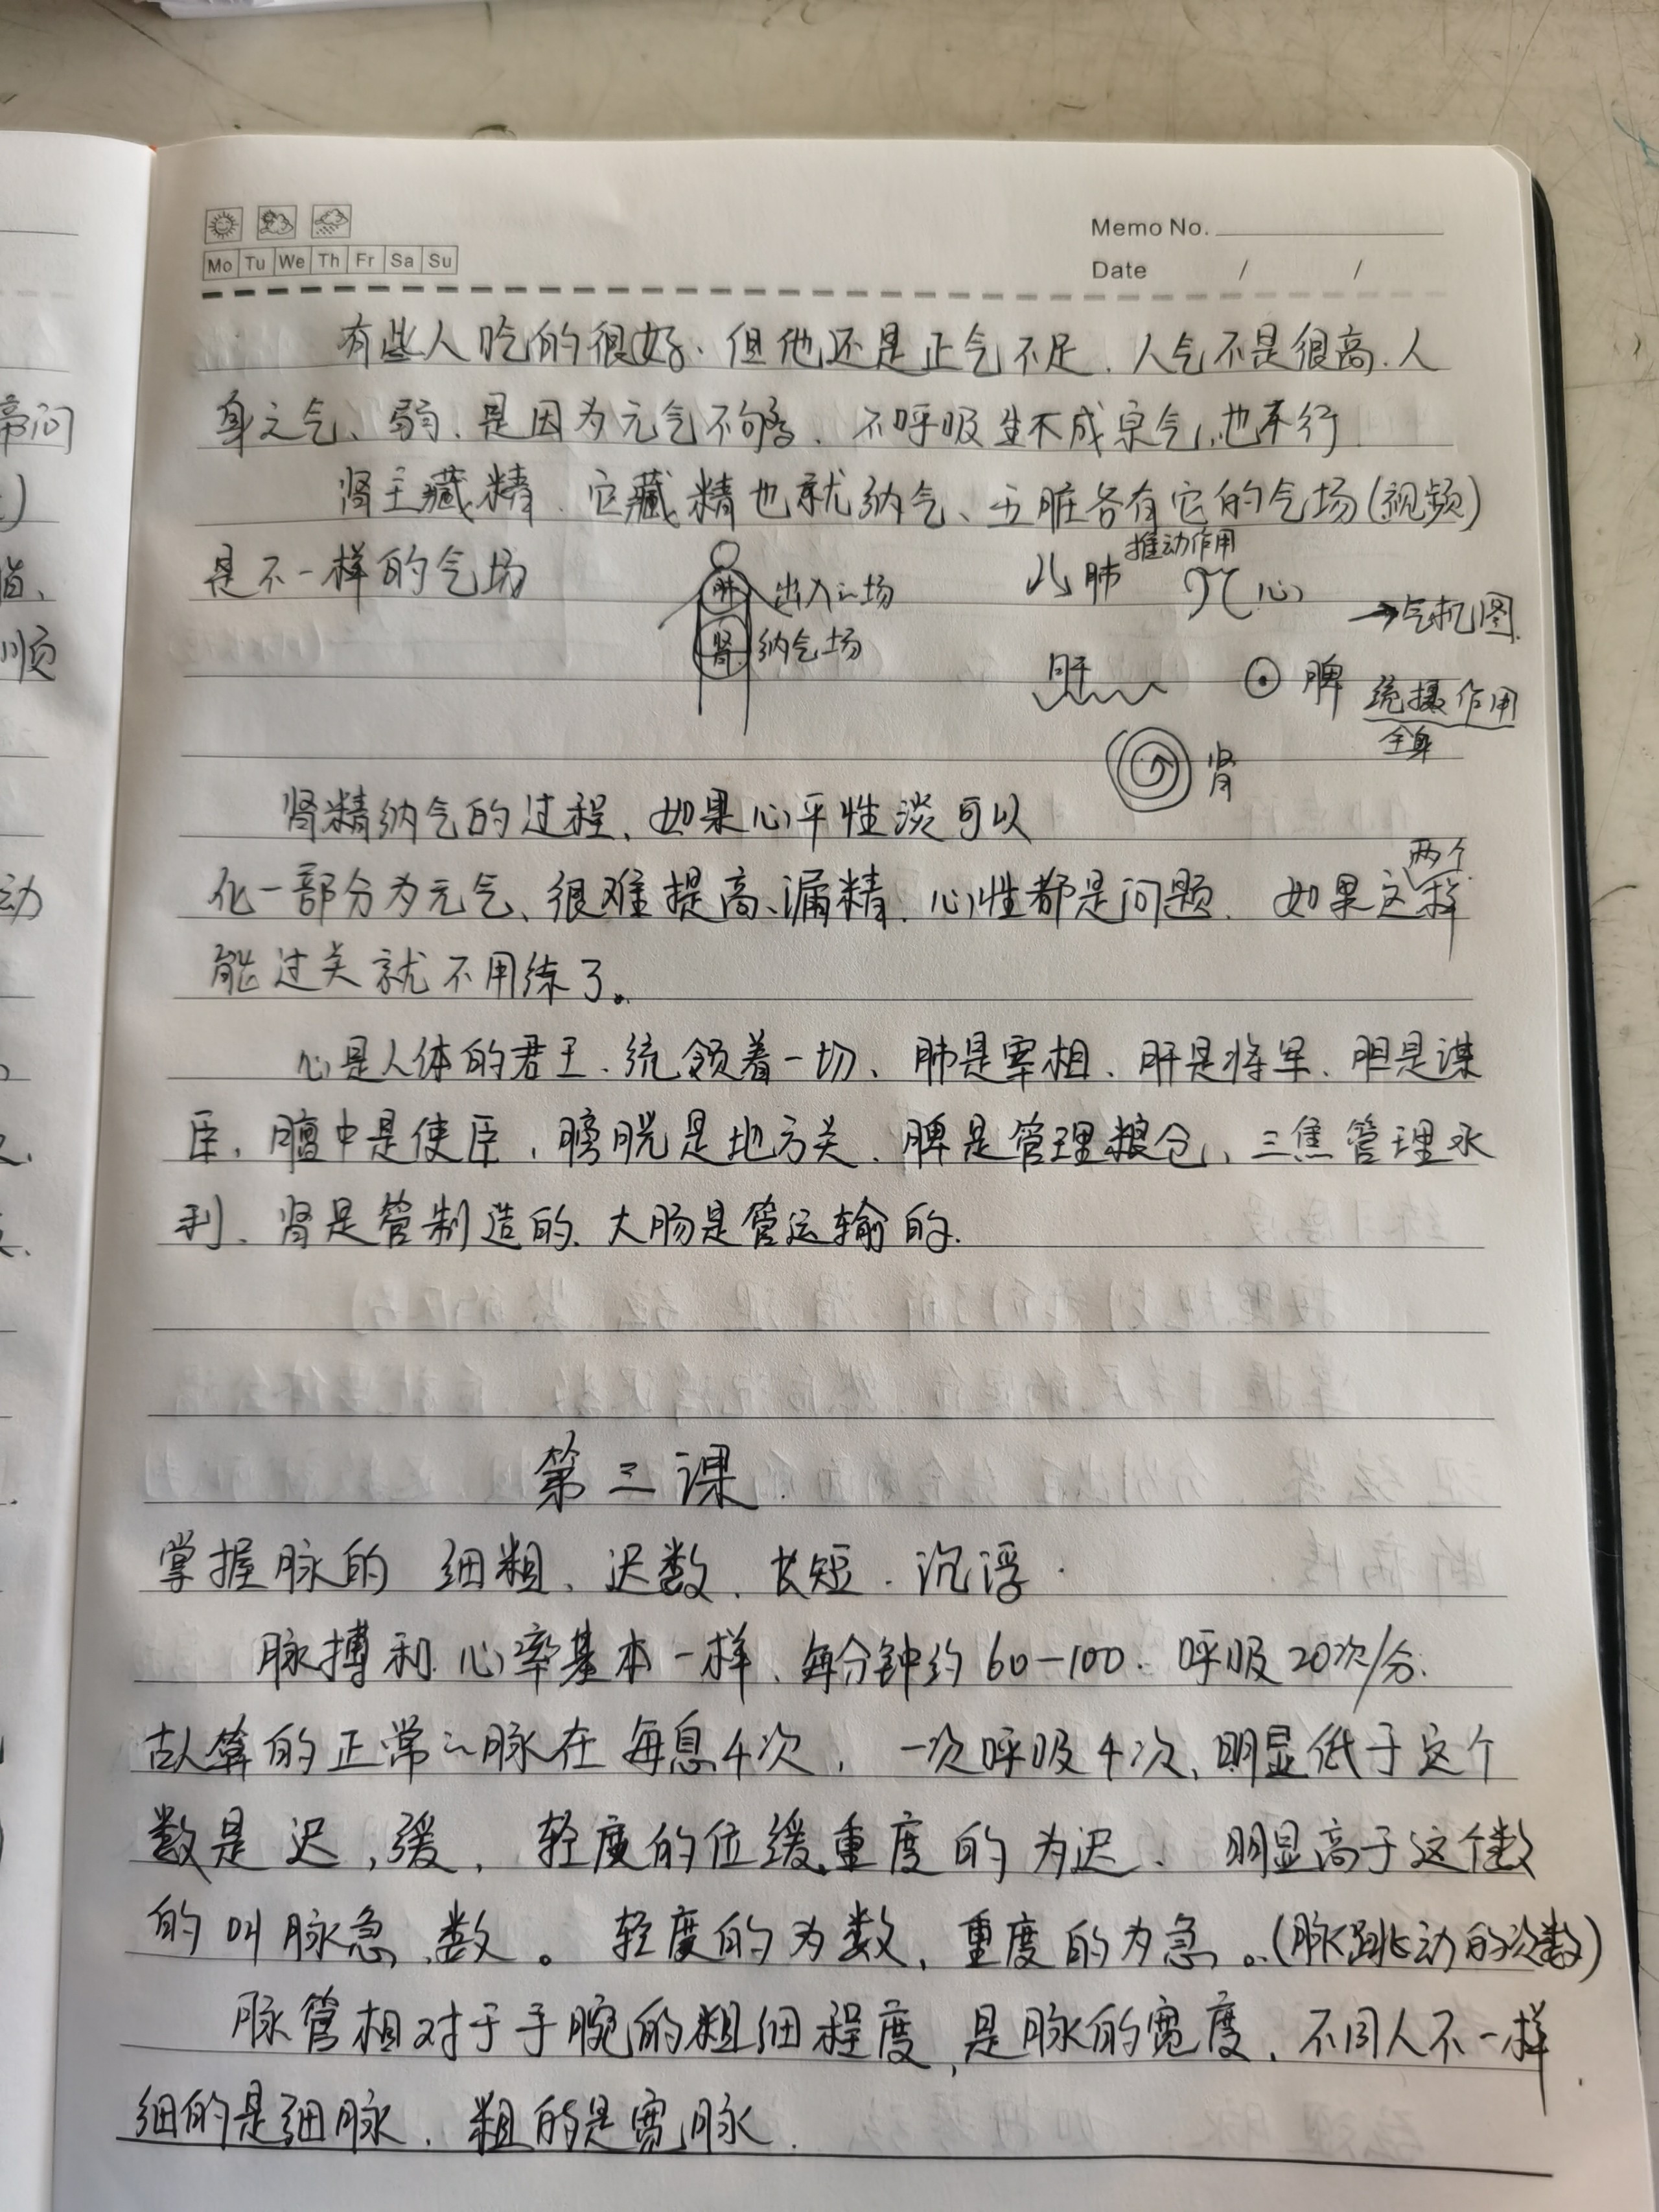 Memo No.
Mo Tu We Th Fr Sa Su
Date / /
有些人吃的很好、但他还是正气不足、人气不是很高、人
身之气、弱、是因为元气不够、不呼吸生不成宗气、也不行
肾主藏精、它藏精也就纳气、五脏各有它的气场(视频)
是不一样的气场
肺 出入之场
肾 纳气场
肺 推动作用
心
→气机图
肝
脾 统摄作用
全身
肾
肾精纳气的过程、如果心平性淡可以
化一部分为元气、很难提高、漏精、心性都是问题、如果这两个样
能过关就不用练了。
心是人体的君王、统领着一切、肺是宰相、肝是将军、胆是谋
臣、膻中是使臣、膀胱是地方关、脾是管理粮仓、三焦管理水
利、肾是管制造的、大肠是管运输的.
第三课
掌握脉的 细粗、迟数、长短、沉浮.
脉搏和心率基本一样、每分钟约60-100. 呼吸20次/分.
古人算的正常之脉在每息4次, 一次呼吸4次、明显低于这个
数是 迟,缓, 轻度的位缓,重度的为迟、 明显高于这个数
的叫脉急、数。 轻度的为数, 重度的为急。(脉跳动的次数)
脉管相对于手腕的粗细程度、是脉的宽度、不同人不一样.
细的是细脉、粗的是宽脉.